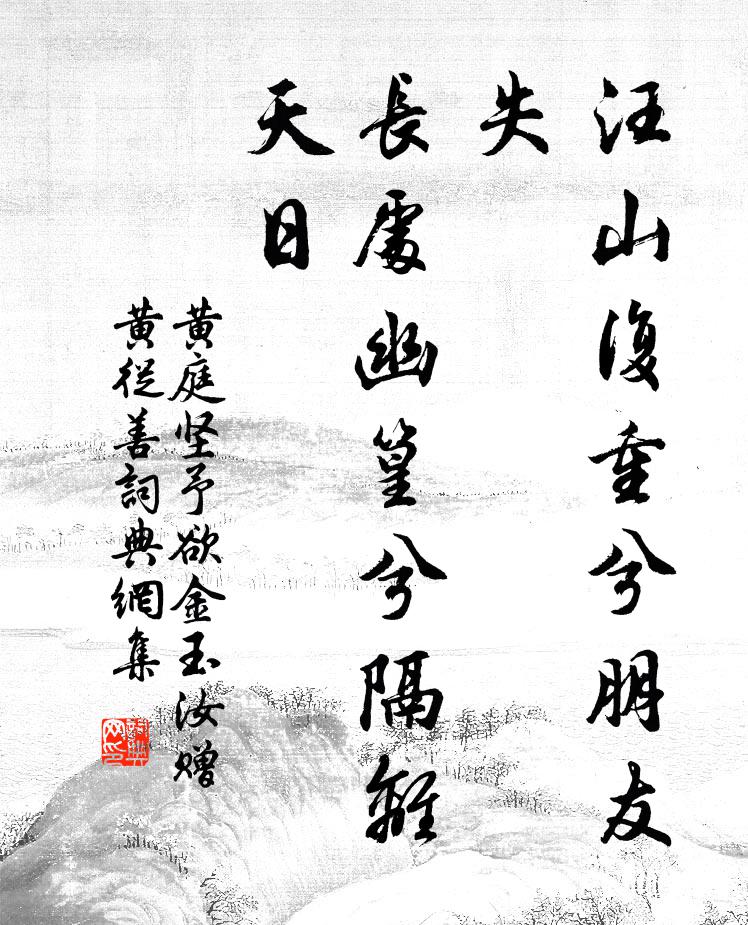 汪山復重兮朋友
失
長處幽篁兮隔離
天日
黄庭坚予欲金玉汝赠
黄從善詞典網集